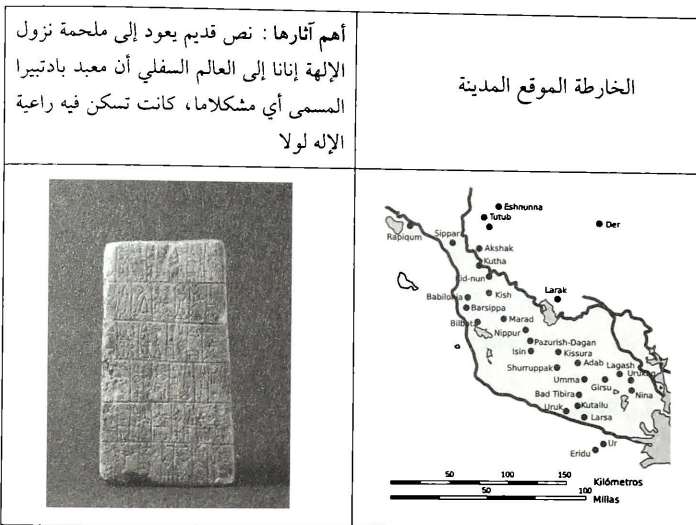 الخارطة الموقع المدينة
أهم آثارها: نص قديم يعود إلى ملحمة نزول
الإلهة إنانا إلى العالم السفلي أن معبد بادتبيرا
المسمى أي مشكلاما، كانت تسكن فيه راعية
الإله لولا
Eshnunna
Tutub
Der
Rapiqum
Sippar
Akshak
Kutha
Kid-nun
Larak
Babilonia
Kish
Barsippa
Marad
Bilbat
Nippur
Pazurish-Dagan
Isin
Kissura
Adab
Lagash
Shurruppak
Urukag
Umma
Girsu
Nina
Bad Tibira
Uruk
Kutallu
Larsa
Ur
Eridu
50 100 150
Kilómetros
50 100
Millas